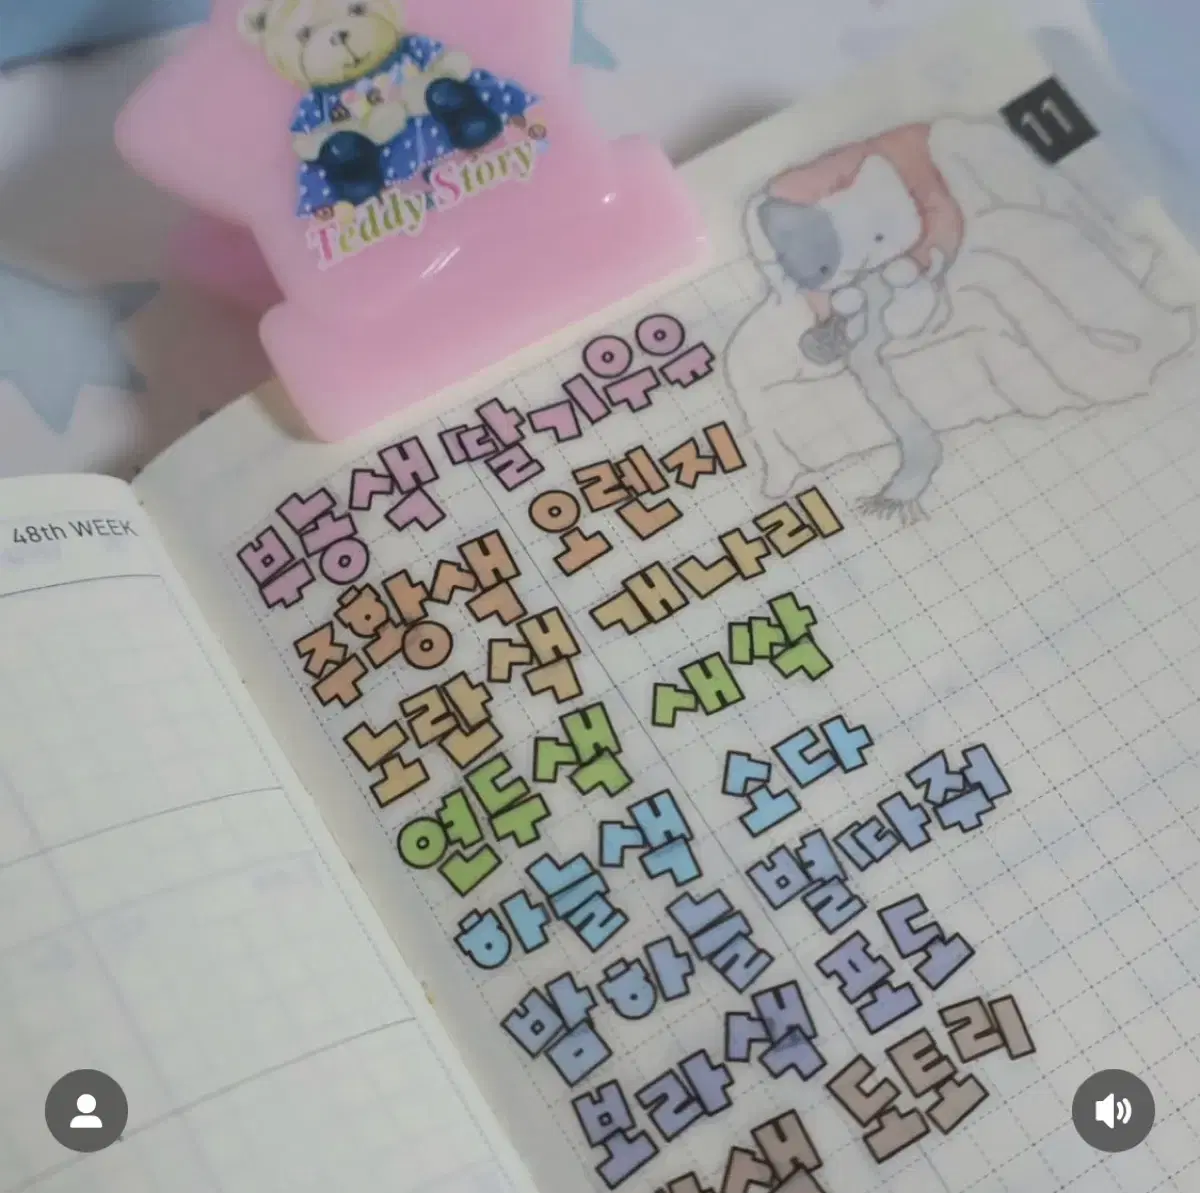 Teddy Story
11
48th WEEK
부농색 딸기우유
주황색 오렌지
노란색 개나리
연두색 새싹
하늘색 소다
밤하늘 별따줘
보라색 포도
색 도토리